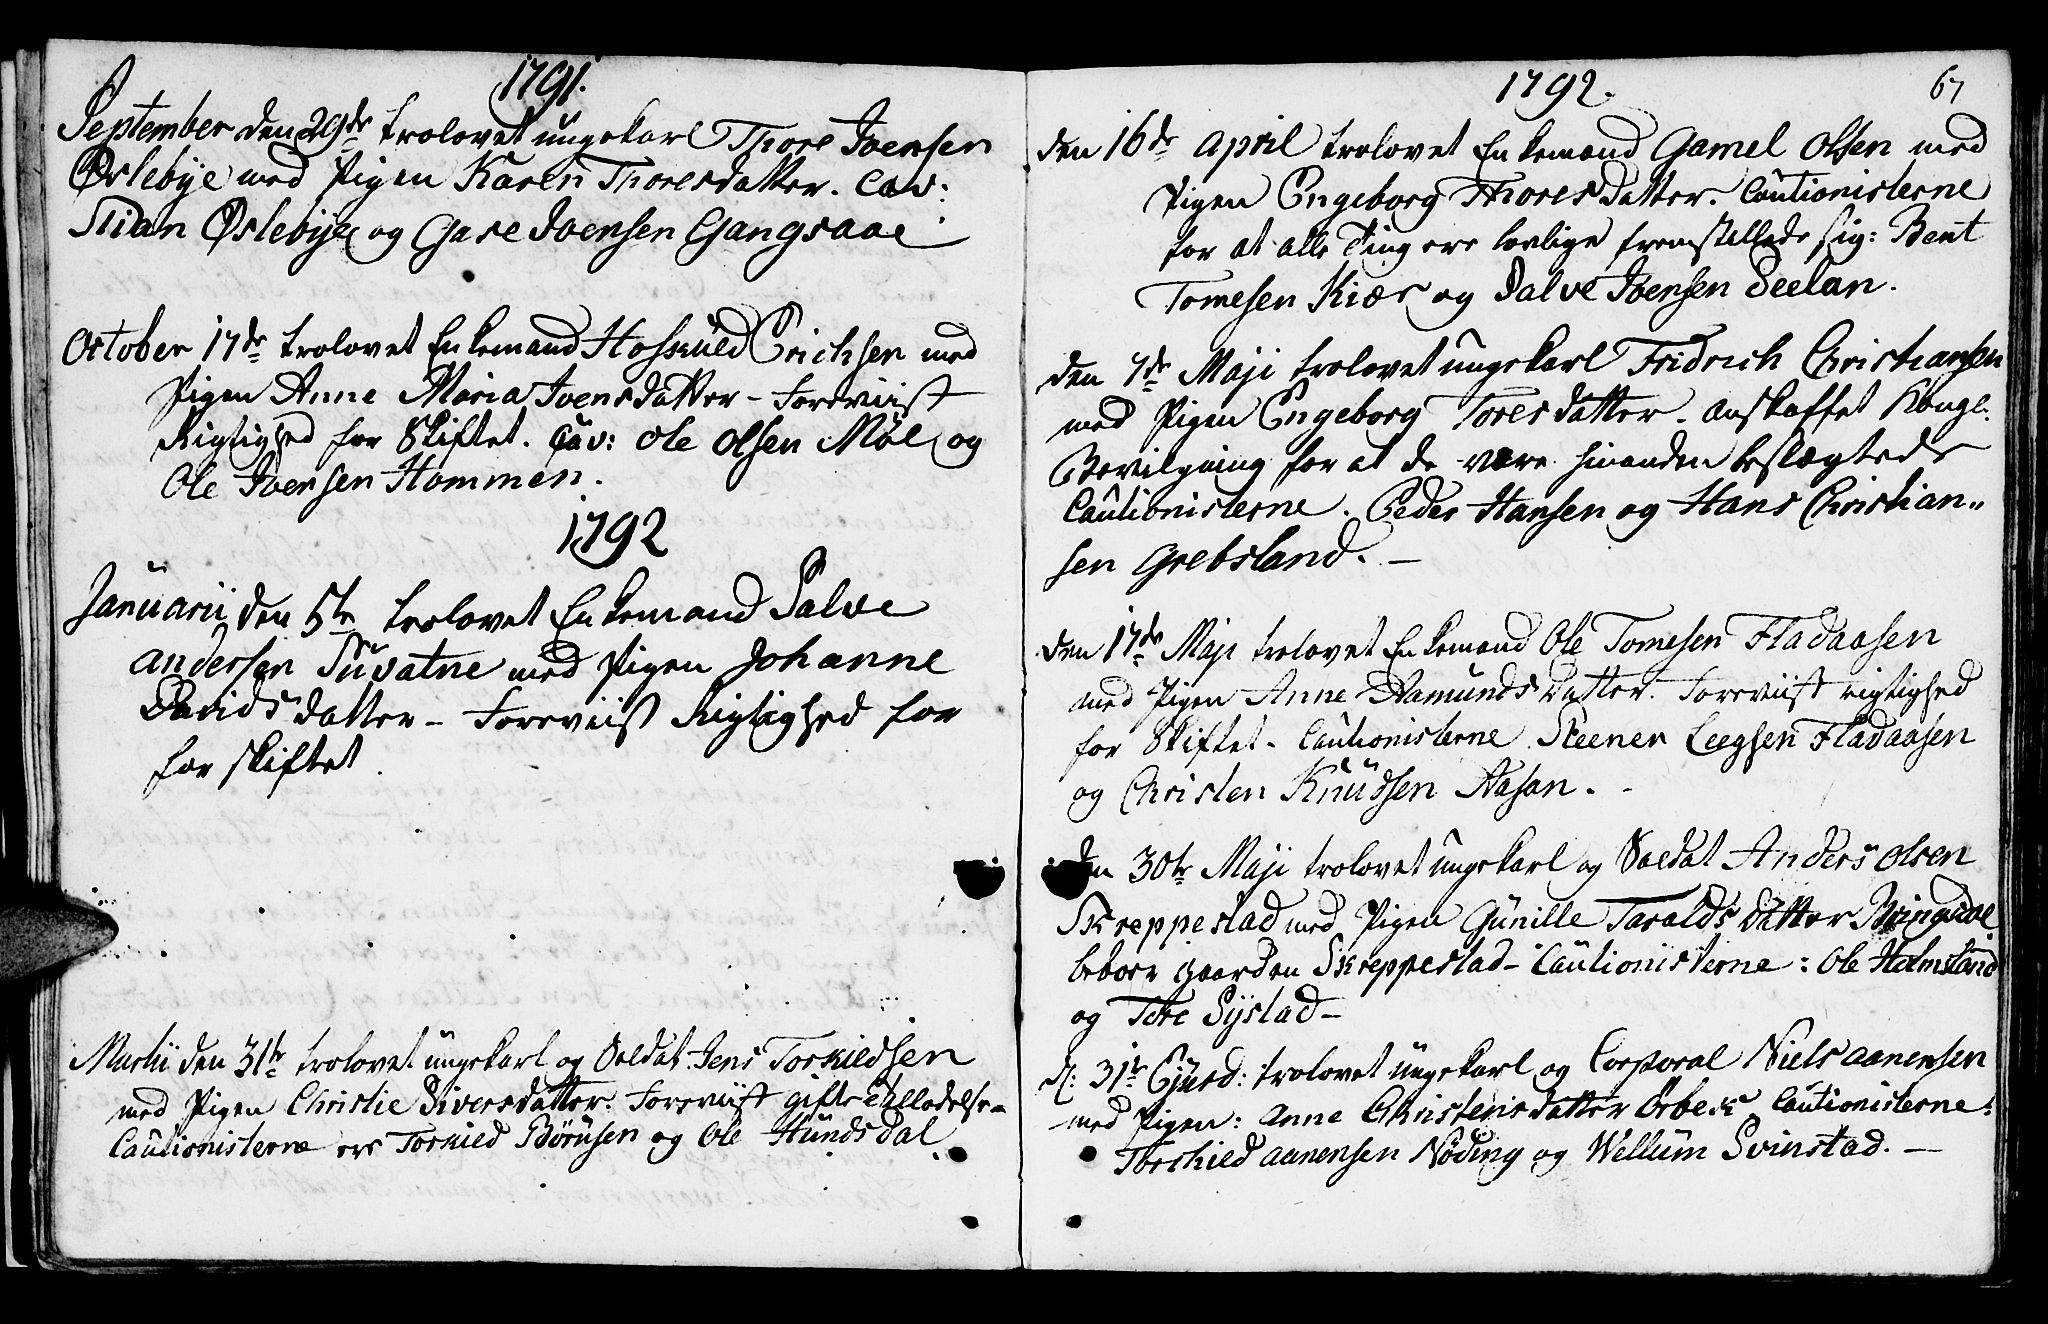 1791.
September den 29de trolovet ungekarl Thore Joensen
Øslebye med Pigen Karen Thoresdatter. Cav:
Stian Øslebye og Gare Joensen Gangsaae
October 17de trolovet Enkemand Hoskuld Erichsen med
Pigen Anne Maria Joensdatter - Foreviist
Rigtighed for Skiftet. Cav: Ole Olsen Møl og
Ole Joensen Hommen.
1792
Januarii den 5te trolovet Enkemand Salve
Andersen Tuvatne med Pigen Johanne
Davidsdatter - Foreviist Rigtighed for
for skiftet.
Martii den 31te trolovet ungekarl og Soldat Jens Torkildsen
med Pigen Christie Siversdatter. Foreviist gifte Tilladelse -
Cautionisterne ere Torkied Børusen og Ole Hundsdal.
1792.
67
den 16de April trolovet Enkemand Gamel Olsen med
Pigen Engeborg Thoresdatter. Cautionisterne
for at alle Ting ere lovlige fremstillede sig: Bent
Tomesen Kiær og Salve Joensen Seelan.
den 7de Maji trolovet ungekarl Fridrich Christiansen
med Pigen Engeborg Toresdatter. anskaffet Kongl:
Bevilgning for at de være hinanden beslægtede
Cautionisterne. Peder Hansen og Hans Christian„
sen Grebsland. -
den 17de Maji trolovet Enkemand Ole Tomesen Fladaasen
med Pigen Anne Aamundsdatter. Foreviist rigtighed
for Skiftet - Cautionisterne Steener Leegsen Fladaasen
og Christen Knudsen Aasan. -
den 30te Maji trolovet ungekarl og Soldat Anders Olsen
Skreppestad med Pigen Gunille Taraldsdatter
beboer gaarden Skreppestad - Cautionisterne: Ole Holmsland
og Tore Systad -
d: 31te Ejusd: trolovet ungekarl og Corporal Niels Aanensen
med Pigen: Anne Christensdatter Ørbeck Cautionisterne:
Torckield Aanensen Nøding og Wellum Svinstad. -